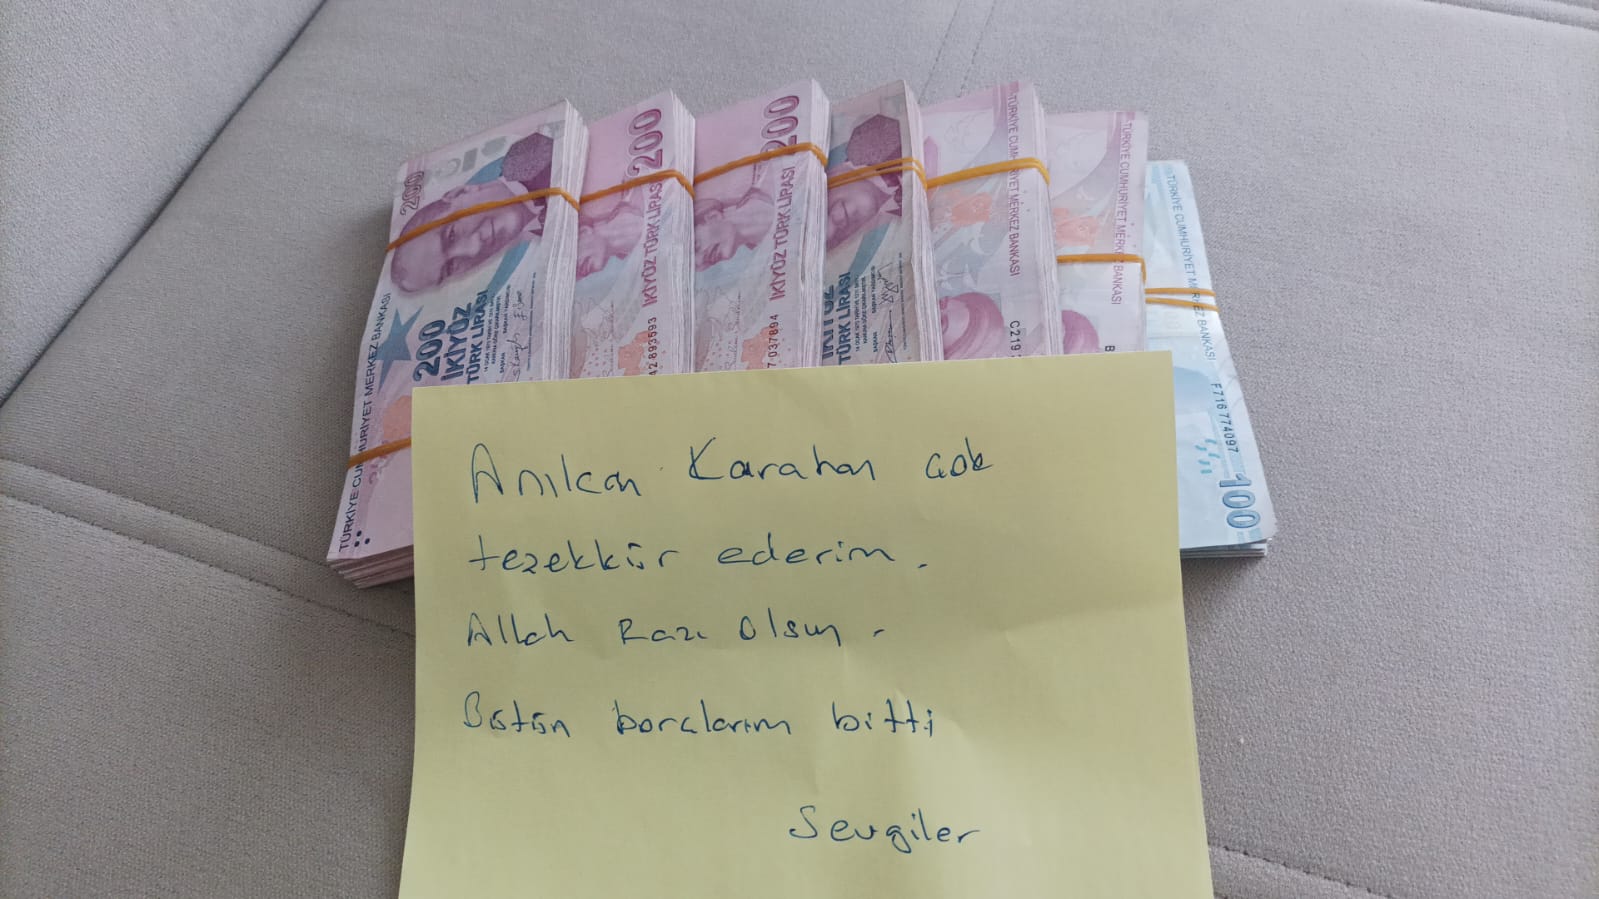 Anılcan Karahan çok
tezekkür ederim.
Allah Razı Olsun.
Bütün borçlarım bitti
Sevgiler
200
TÜRKİYE CUMHURİYET MERKEZ BANKASI
200
İKİYÜZ
TÜRK LİRASI
200
İKİYÜZ TÜRK LİRASI
42 893593
200
İKİYÜZ TÜRK LİRASI
7 037894
İKİYÜZ
TÜRK LİRASI
TÜRKİYE CUMHURİYET MERKEZ BANKASI
C219
TÜRKİYE CUMHURİYET MERKEZ BANKASI
B
TÜRKİYE CUMHURİYET MERKEZ BANKASI
F716 774097
100